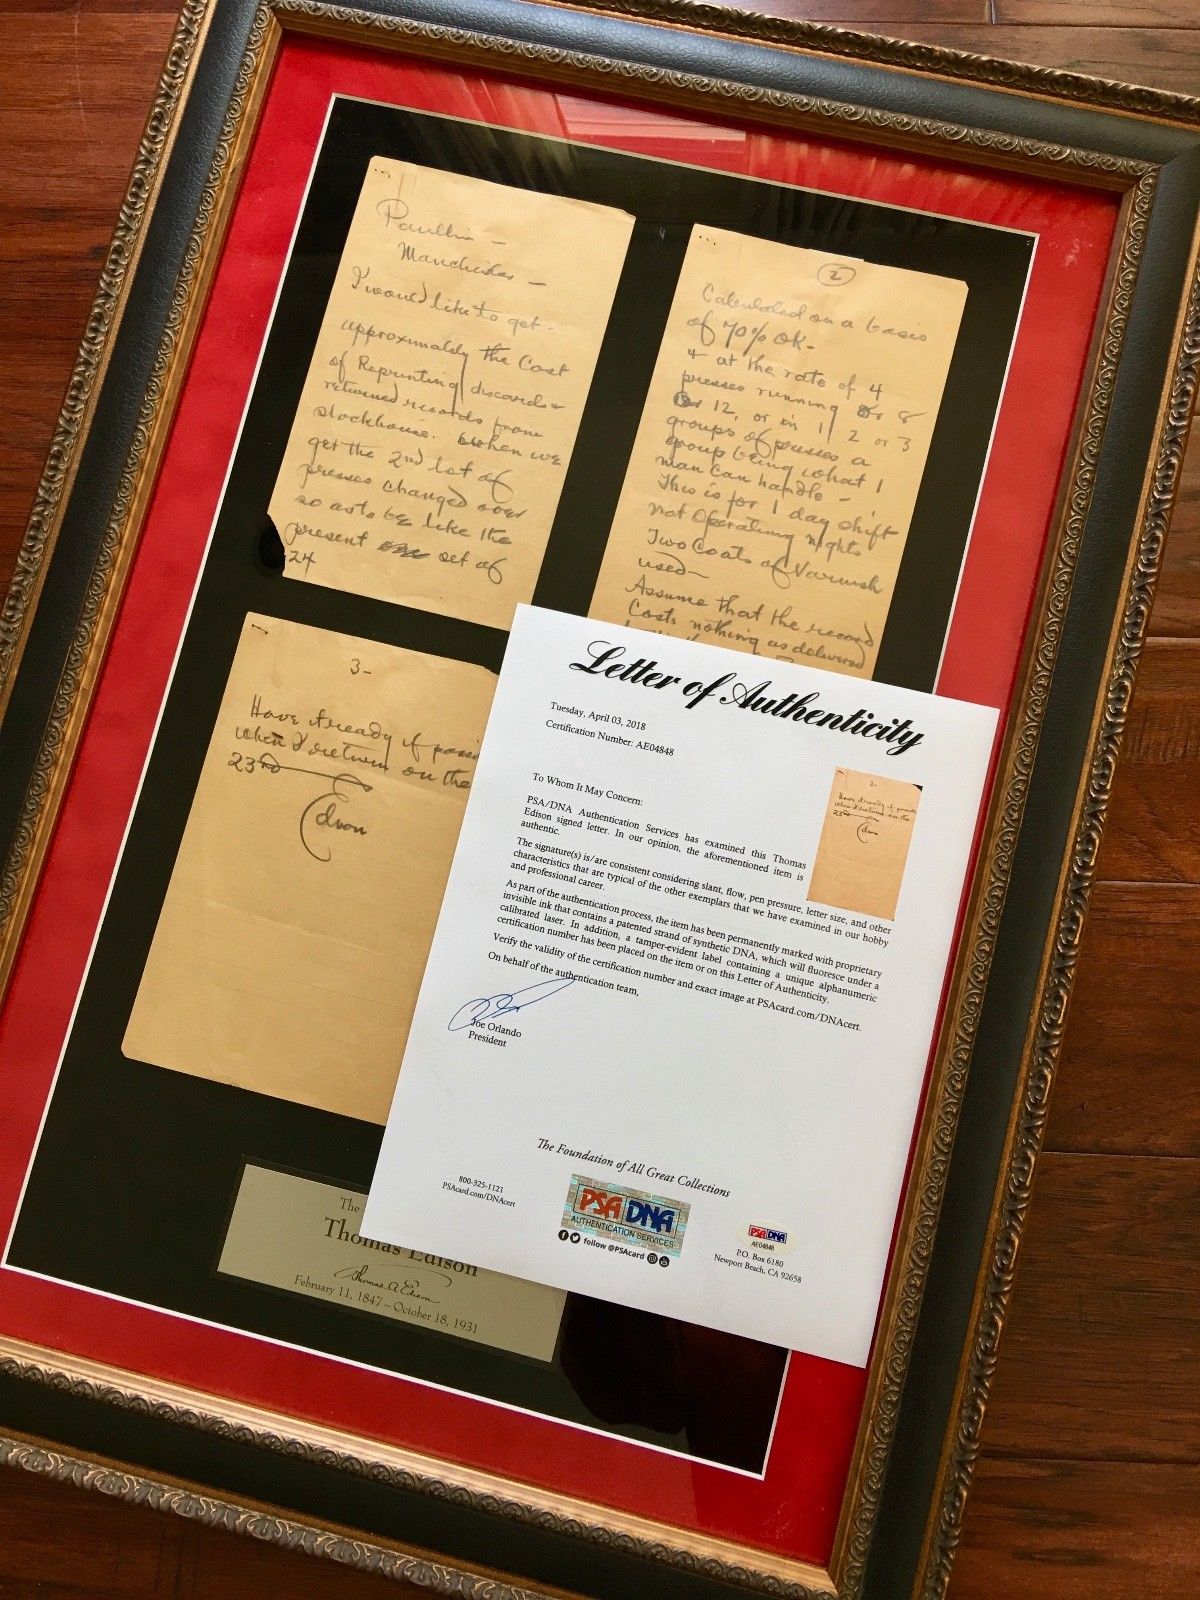 Paullin –
Manchester –
I would like to get
approximately the Cost
of Reprinting discards &
returned records from
stockhouse. when we
get the 2nd lot of
presses changed over
so as to be like the
present set of
24
2
Calculated on a basis
of 70% OK–
& at the rate of 4
presses running or 8
or 12, or in 1, 2 or 3
groups of presses a
group being what 1
man can handle –
This is for 1 day shift
not Operating nights
Two Coats of Varnish
used–
Assume that the record
Costs nothing as delivered
3-
Have it ready if possi
when I return on the
23rd
Edison
Letter of Authenticity
Tuesday, April 03, 2018
Certification Number: AE04848
To Whom It May Concern:
PSA/DNA Authentication Services has examined this Thomas
Edison signed letter. In our opinion, the aforementioned item is
authentic.
The signature(s) is/are consistent considering slant, flow, pen pressure, letter size, and other
characteristics that are typical of the other exemplars that we have examined in our hobby
and professional career.
As part of the authentication process, the item has been permanently marked with proprietary
invisible ink that contains a patented strand of synthetic DNA, which will fluoresce under a
calibrated laser. In addition, a tamper-evident label containing a unique alphanumeric
certification number has been placed on the item or on this Letter of Authenticity.
Verify the validity of the certification number and exact image at PSAcard.com/DNAcert.
On behalf of the authentication team,
Joe Orlando
President
3-
Have it ready if possi
when I return on the
23rd
Edison
The Foundation of All Great Collections
800-325-1121
PSAcard.com/DNAcert
PSA DNA
AUTHENTICATION SERVICES
follow @PSAcard
PSA DNA
AE04848
P.O. Box 6180
Newport Beach, CA 92658
The
Thomas Edison
Thomas A Edison
February 11, 1847 – October 18, 1931